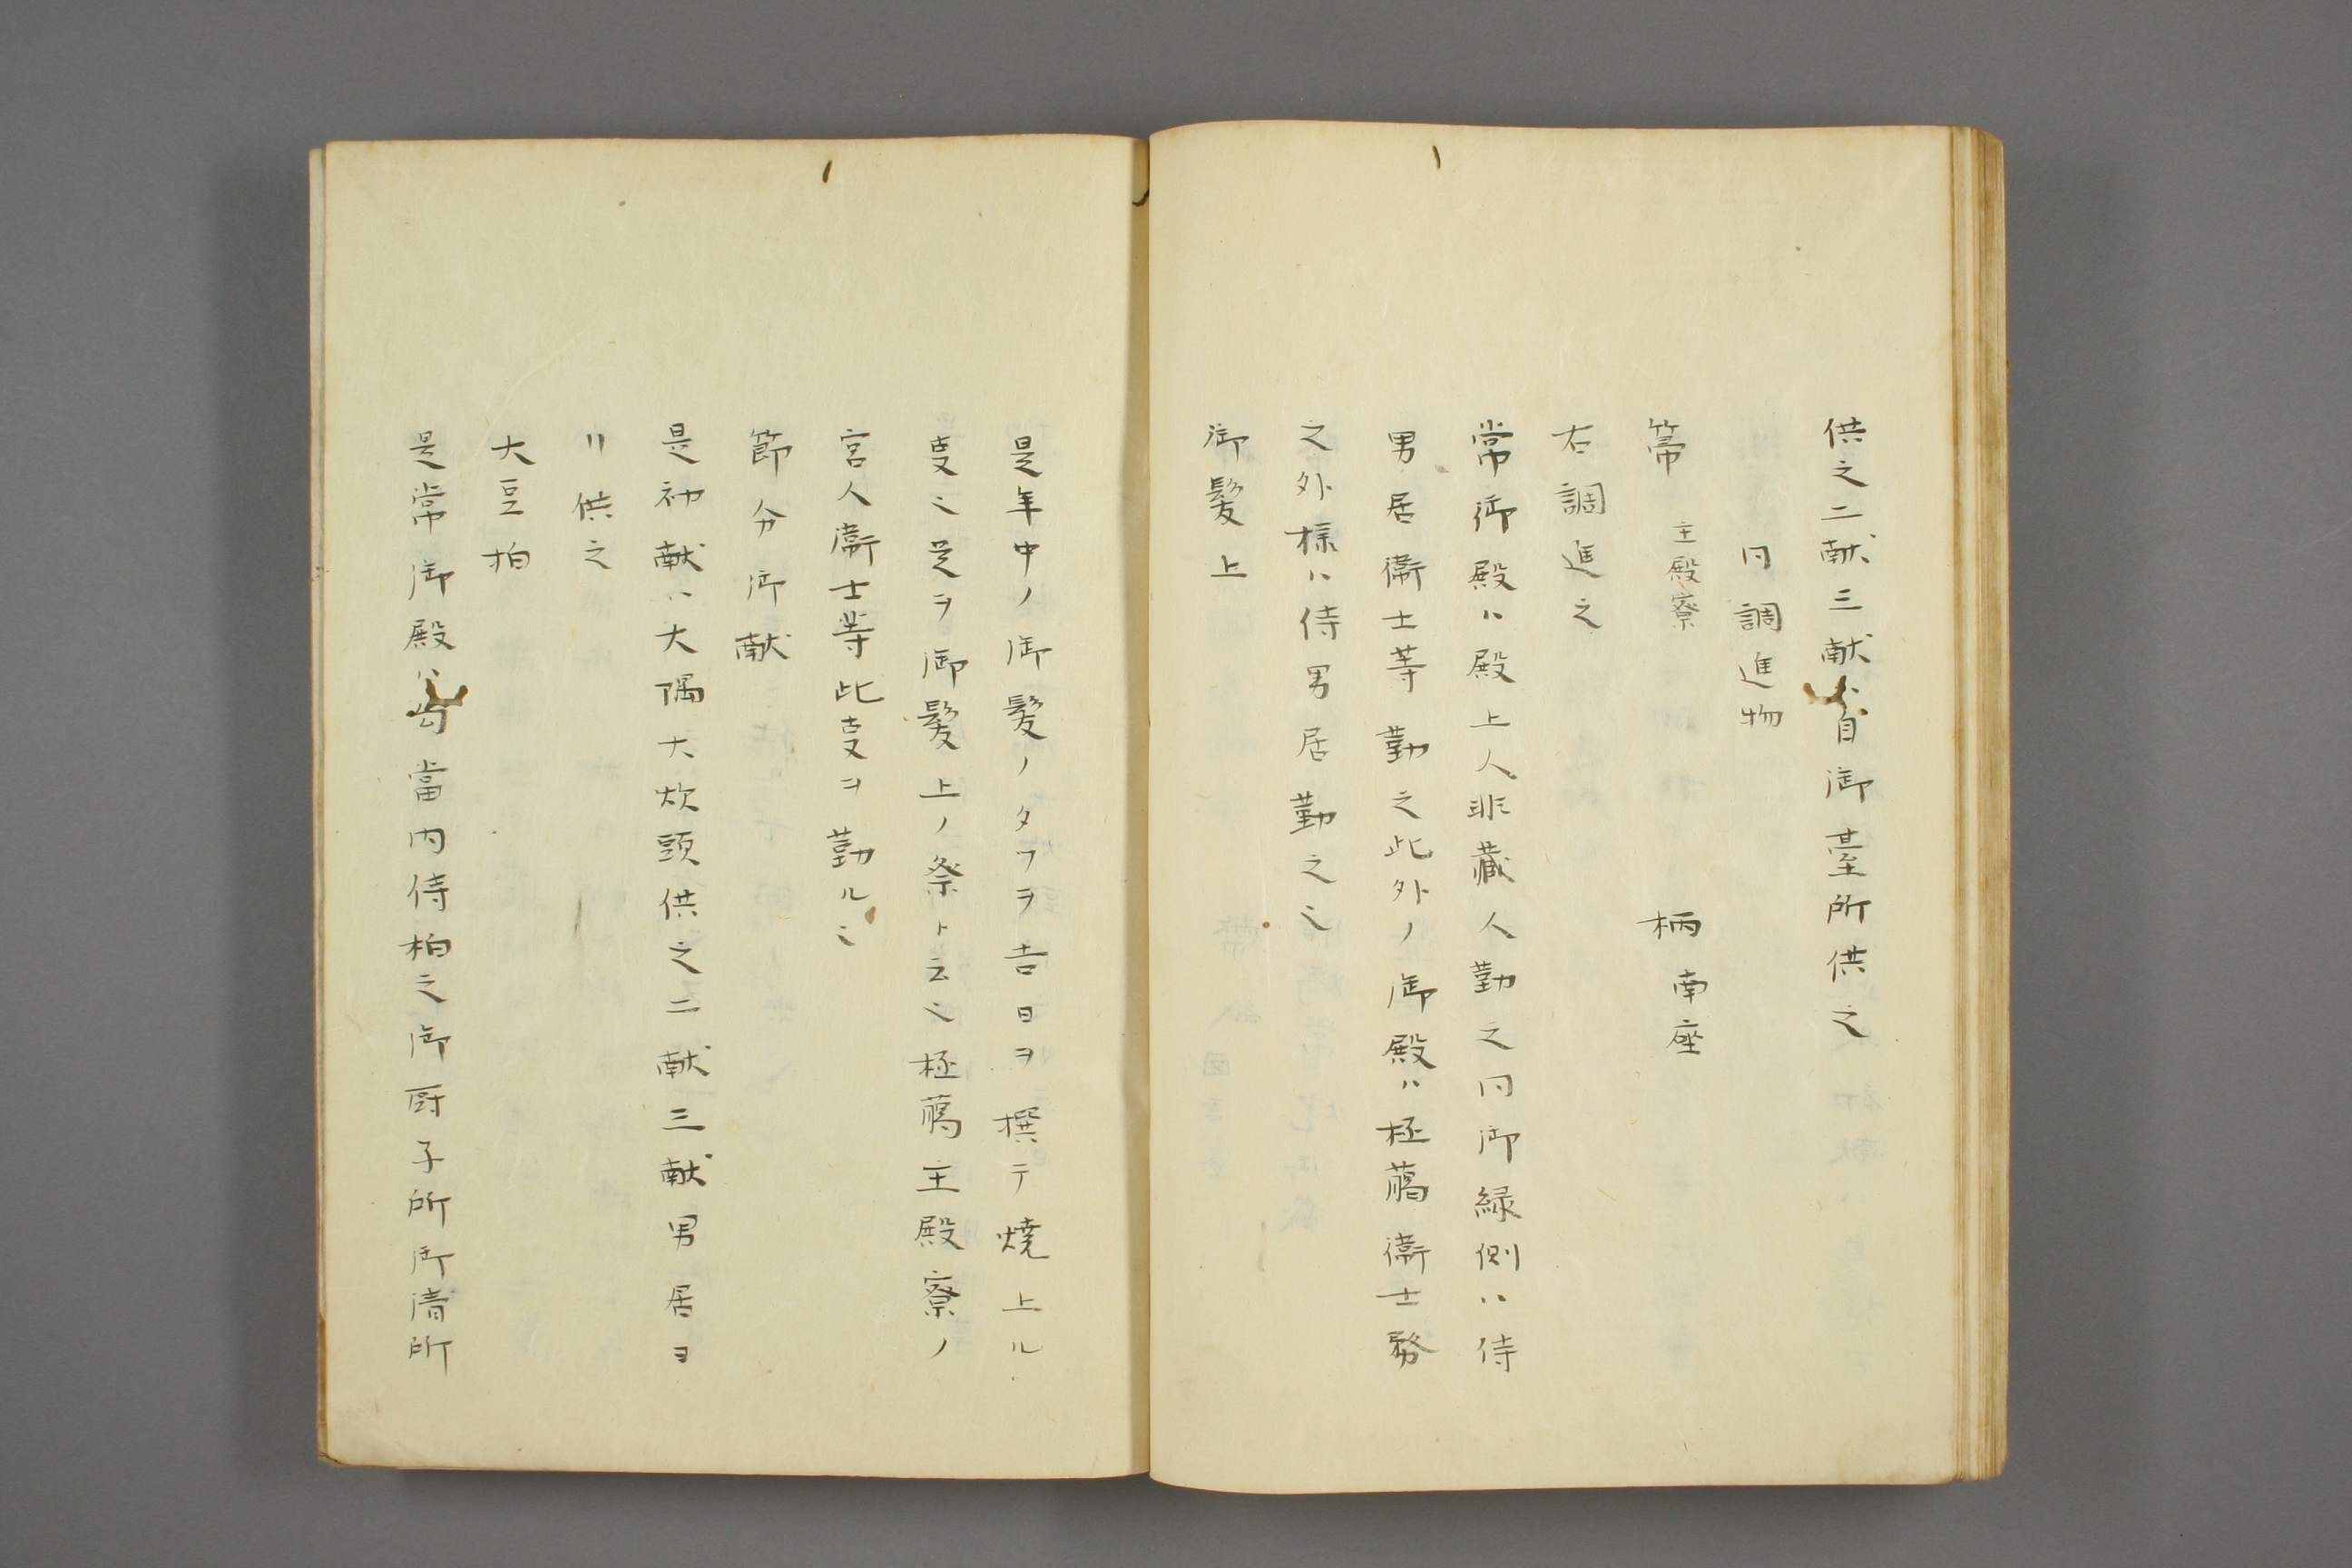 供之二献三献ハ自御臺所供之
同調進物
箒 主殿寮 柄南座
右調進之
常御殿ハ殿上人非蔵人勤之同御縁側ハ侍
男居衞士等勤之此外ノ御殿ハ極﨟衞士務
之外様ハ侍男居勤之也
御髪上
是年中ノ御髪ノタワヲ吉日ヲ撰テ焼上ル
叓也是ヲ御髪上ノ祭ト云也極﨟主殿寮ノ
宮人衞士等此叓ヲ勤ル也
節分御献
是初献ハ大隅大炊頭供之二献三献男居ヨ
リ供之
大豆拍
是常御殿ハ勾當内侍拍之御厨子所御清所